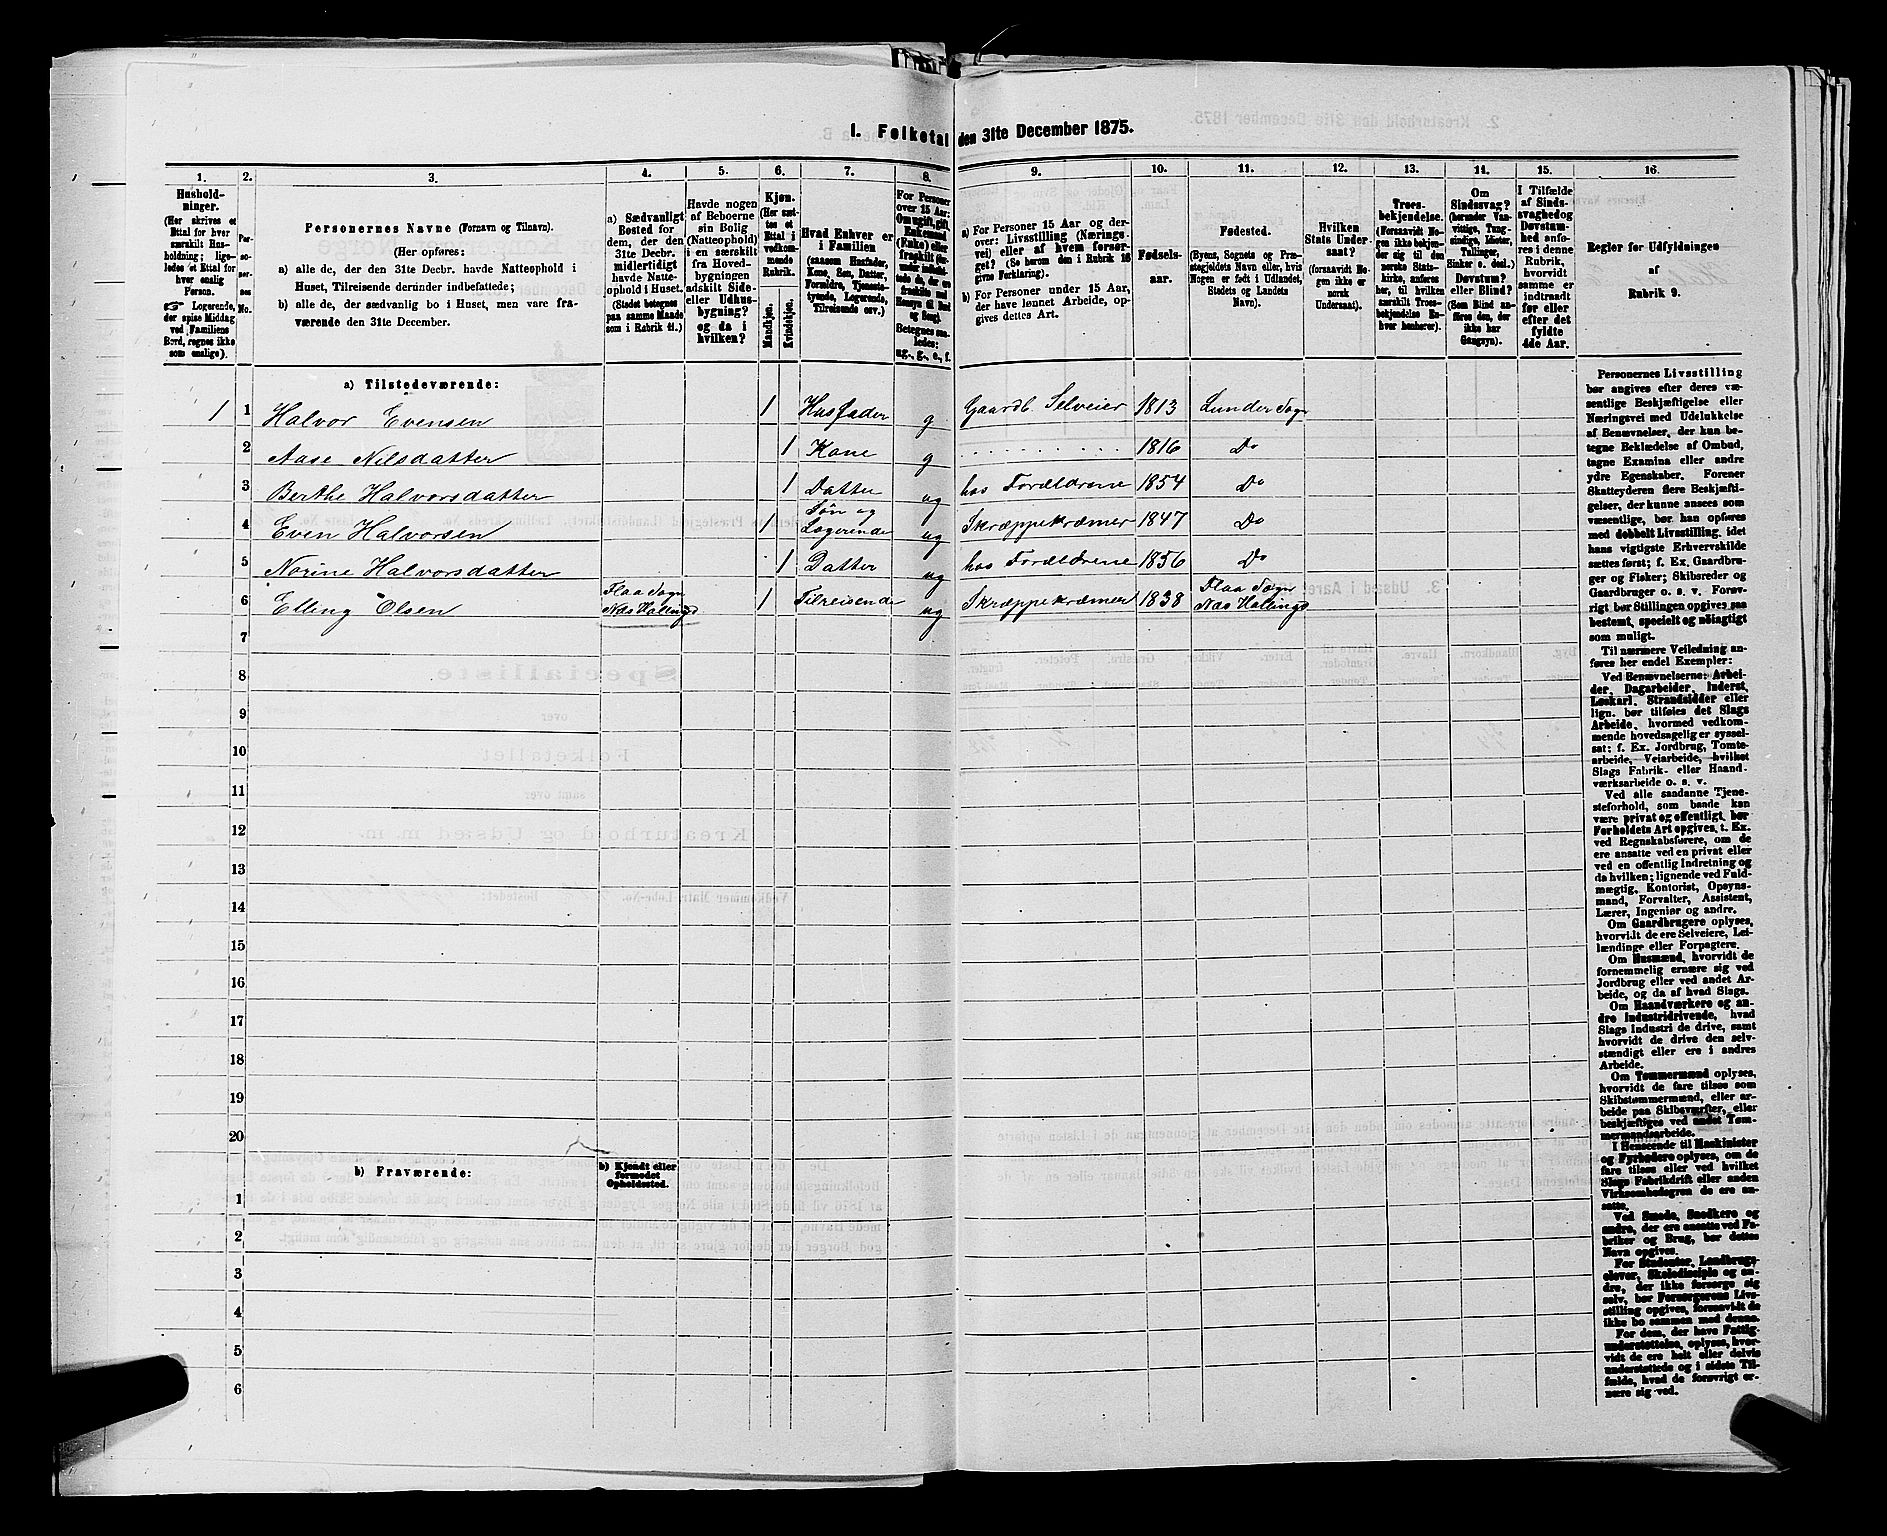 1. Folketal den 31te December 1875.
1. 2. 3. 4. 5. 6. 7. 8. 9. 10. 11. 12. 13. 14. 15. 16.
Hushold-
ninger.
(Her skrives et
Ettal for hver
særskilt Hus-
holdning; lige-
ledes et Ettal for
hver enslig
Person.
☞ Logerende,
der spise Middag
ved Familiens
Bord, regnes ikke
som enslige).
Per-
so-
ner-
nes
No.
Personernes Navne (Fornavn og Tilnavn).
(Her opføres:
a) alle de, der den 31te Decbr. havde Natteophold i
Huset, Tilreisende derunder indbefattede;
b) alle de, der sædvanlig bo i Huset, men vare fra-
værende den 31te December.
a) Sædvanligt
Bosted for
dem, der den
31te Decbr.
midlertidigt
havde Natte-
ophold i Huset.
(Stedet betegnes
paa samme Maade
som i Rubrik 11.)
Havde nogen
af Beboerne
sin Bolig
(Natteophold)
i en særskilt
fra Hoved-
bygningen
adskilt Side-
eller Udhus-
bygning?
og da i
hvilken?
Kjøn.
(Her sæt-
tes et
Ettal i
vedkom-
mende
Rubrik.
Mandkjøn.
Kvindekjøn.
Hvad Enhver er
i Familien
(saasom Husfader,
Kone, Søn, Datter,
Forældre, Tjeneste-
tyende, Logerende,
Tilreisende osv.)
For Personer
over 15 Aar:
Om ugift, gift,
Enkemand
(Enke) eller
fraskilt
Betegnes saa-
ledes:
ug., g., e., f.
a) For Personer 15 Aar og der-
over: Livsstilling (Nærings-
vei) eller af hvem forsør-
get? (Se herom den i Rubrik 16
givne Forklaring).
b) For Personer under 15 Aar,
der have lønnet Arbeide, op-
gives dettes Art.
Fødsels-
aar.
Fødested.
(Byens, Sognets og Præ-
stegjeldets Navn eller, hvis
Nogen er født i Udlandet,
Stedets og Landets
Navn).
Hvilken
Stats Under-
saat?
(forsaavidt No-
gen ikke er
norsk
Undersaat).
Troes-
bekjendelse.
(Forsaavidt No-
gen ikke bekjen-
der sig til den
norske Stats-
kirke, anføres
her, til hvilken
særskilt Troes-
bekjendelse En-
hver henhører).
Om
Sindssvag?
(herunder Van-
vittige, Tung-
sindige, Idioter,
Tullinger,
Sinker o. desl.)
Døvstum?
eller Blind?
(Som Blind an-
føres den, der
ikke har
Gangsyn).
I Tilfælde
af Sinds-
svaghed og
Døvstum-
hed anfø-
res i denne
Rubrik,
hvorvidt
samme er
indtraadt
før eller
efter det
fyldte
4de Aar.
Regler for Udfyldningen
af
Rubrik 9.
a) Tilstedeværende:
1 1 Halvor Evensen 1 Husfader g Gaardb. Selveier 1813 Lunder Sogn
2 Aase Nilsdatter 1 Kone g 1816 Do
3 Berthe Halvorsdatter 1 Datter ug hos Forældrene 1854 Do
4 Even Halvorsen 1 Søn og Logerende ug Skræppekræmer 1847 Do
5 Norine Halvorsdatter 1 Datter ug hos Forældrene 1856 Do
6 Elling Olsen Flaa Sogn Næs Hallingd 1 Tilreisende ug Skræppekræmer 1838 Flaa Sogn Næs Hallingd
7
8
9
10
11
12
13
14
15
16
17
18
19
20
b) Fraværende:
b) Kjendt eller
formodet
Opholdssted.
1
2
3
4
5
6
Personernes Livsstilling
bør angives efter deres væ-
sentlige Beskjæftigelse eller
Næringsvei med Udelukkelse
af Benævnelser, der kun be-
tegne Beklædelse af Ombud,
tagne Examina eller andre
ydre Egenskaber. Forener
Skatteyderen flere Beskjæfti-
gelser, der kunne ansees som
væsentlige, bør han opføres
med dobbelt Livsstilling, idet
hans vigtigste Erhvervskilde
sættes først; f. Ex. Gaardbru-
ger og Fisker; Skibsreder og
Gaardbruger o. s. v. Forøv-
rigt bør Stillingen opgives paa
bestemt, specielt og nøiagtigt
som muligt.
Til nærmere Veiledning an-
føres her endel Exempler:
Ved Benævnelserne: Arbei-
der, Dagarbeider, Inderst,
Løskarl, Strandsidder eller
lign. bør tilføies det Slags
Arbeide, hvormed vedkom-
mende hovedsagelig er syssel-
sat; f. Ex. Jordbrug, Tomte-
arbeide, Veiarbeide, hvilket
Slags Fabrik- eller Haand-
værksarbeide o. s. v.
Ved alle saadanne Tjene-
steforhold, som baade kan
være privat og offentligt, bør
Forholdets Art opgives, t. Ex.
ved Regnskabsførere, om de
ere ansatte ved en privat eller
ved en offentlig Indretning og
da hvilken; lignende ved Fuld-
mægtig, Kontorist, Opsyns-
mand, Forvalter, Assistent,
Lærer, Ingeniør og andre.
Om Gaardbrugere oplyses,
hvorvidt de ere Selveiere, Lei-
lændinge eller Forpagtere.
Om Husmænd, hvorvidt de
fornemmelig ernære sig ved
Jordbrug eller ved andet Ar-
beide, og da af hvad Slags.
Om Haandværkere og an-
dre Industridrivende, hvad
Slags Industri de drive, samt
hvorvidt de drive den selv-
stændigt eller ere i andres
Arbeide.
Om Tømmermænd oplyses,
hvorvidt de fare tilsøs som
Skibstømmermænd, eller ar-
beide paa Skibsværfter, eller
beskjæftiges ved andet Tøm-
mermandsarbeide.
I Henseende til Maskinister
og Fyrbødere oplyses, om de
fare tilsøs eller ved hvilket
Slags Fabrikdrift eller anden
Virksomhedsgren de ere an-
satte.
Ved Smede, Snedkere og
andre, der ere ansatte ved Fa-
briker og Brug, bør dettes
Navn opgives.
For Studenter, Landbrugs-
elever, Skoledisciple og an-
dre, der ikke forsørge sig
selv, bør Forsørgerens Livs-
stilling opgives, forsaavidt de
ikke bo sammen med denne.
For dem, der have Fattig-
understøttelse, oplyses, hvor-
vidt de ere helt eller delvis
understøttede og i sidste Til-
fælde, hvad de forøvrigt er-
nære sig ved.